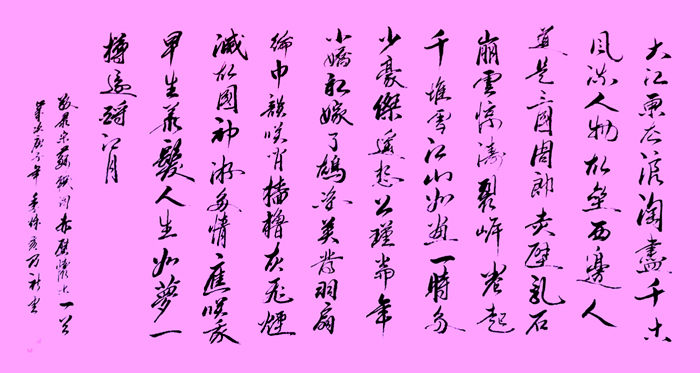 大江東去浪淘盡千古
風流人物故壘西邊人
道是三國周郎赤壁亂石
崩雲驚濤裂岸卷起
千堆雪江山如畫一時多
少豪傑遙想公瑾當年
小嬌初嫁了雄姿英發羽扇
綸巾談笑間檣櫓灰飛煙
滅故國神游多情應笑我
早生華髮人生如夢一
樽還酹江月
宋蘇軾詞赤壁懷古一首